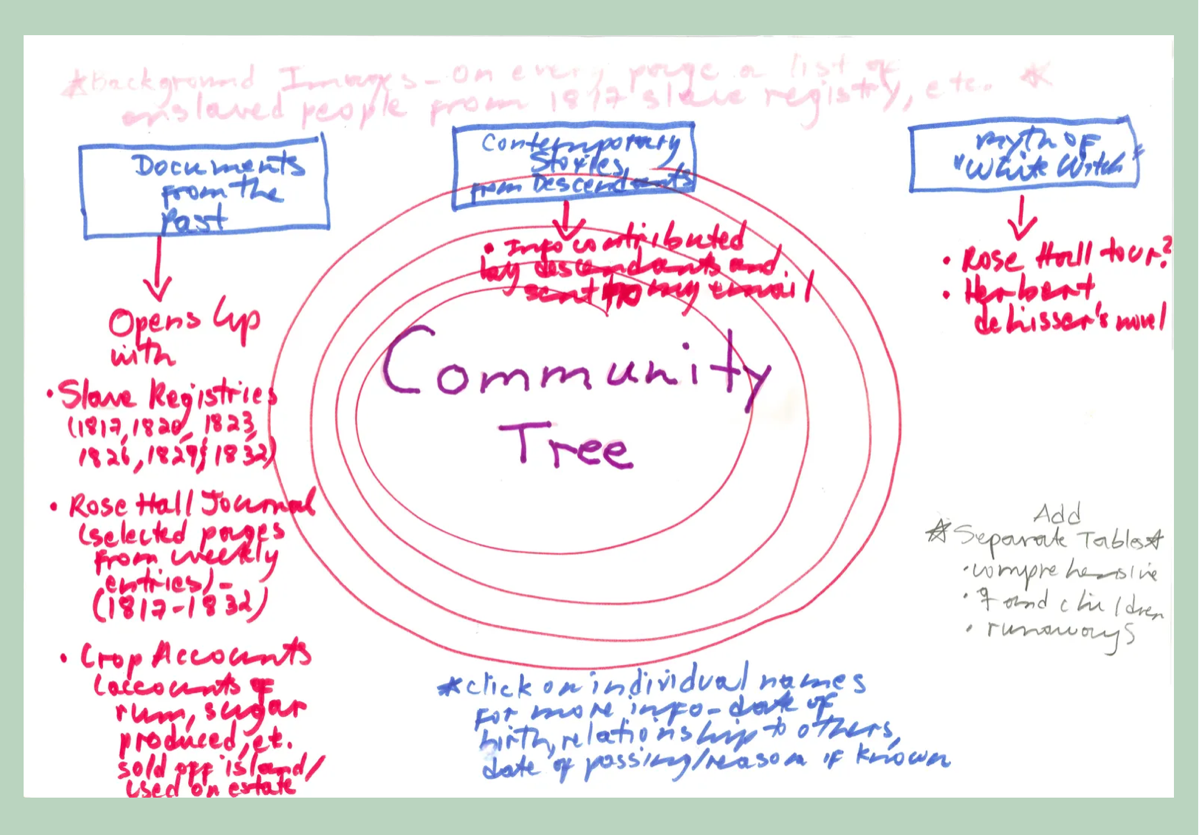 *Background Images - On every page a list of
enslaved people from 1817 slave registry, etc. *
Documents
from the
Past
Opens Up
with
• Slave Registries
(1817, 1820, 1823,
1826, 1829, 1832)
• Rose Hall Journal
(selected pages
from weekly
entries) -
(1817-1832)
• Crop Accounts
(accounts of
rum, sugar
produced, et.
sold off island/
used on estate
Contemporary
Stories
from Descendants
• Info contributed
by descendants and
sent to my email
Community
Tree
*click on individual names
for more info - date of
birth, relationship to others,
date of passing/reason if known
Myth of
"White Witch"
• Rose Hall tour?
• Herbert
deLisser's novel
Add
*Separate Tables*
• comprehensive
• ♀ and children
• runaways